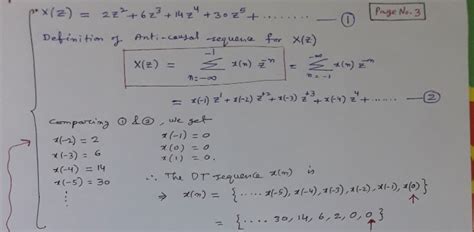 X(z) = 2z² + 6z³ + 14z⁴ + 30z⁵ + ............ ①
Page No. 3
Definition of Anti-causal sequence for X(z)
X(z) = ∑_{n=-∞}^{-1} x(n) z^{-n} = ∑_{n=-1}^{-∞} x(n) z^{-n}
= x(-1) z¹ + x(-2) z^{+2} + x(-3) z^{+3} + x(-4) z⁴ + ...... ②
Comparing ① & ②, we get
x(-2) = 2
x(-3) = 6
x(-4) = 14
x(-5) = 30
x(-1) = 0
x(0) = 0
x(1) = 0.
∴ The DT sequence x(n) is
→ x(n) = {.....x(-5), x(-4), x(-3), x(-2), x(-1), x(0)}
= {.... 30, 14, 6, 2, 0, 0}